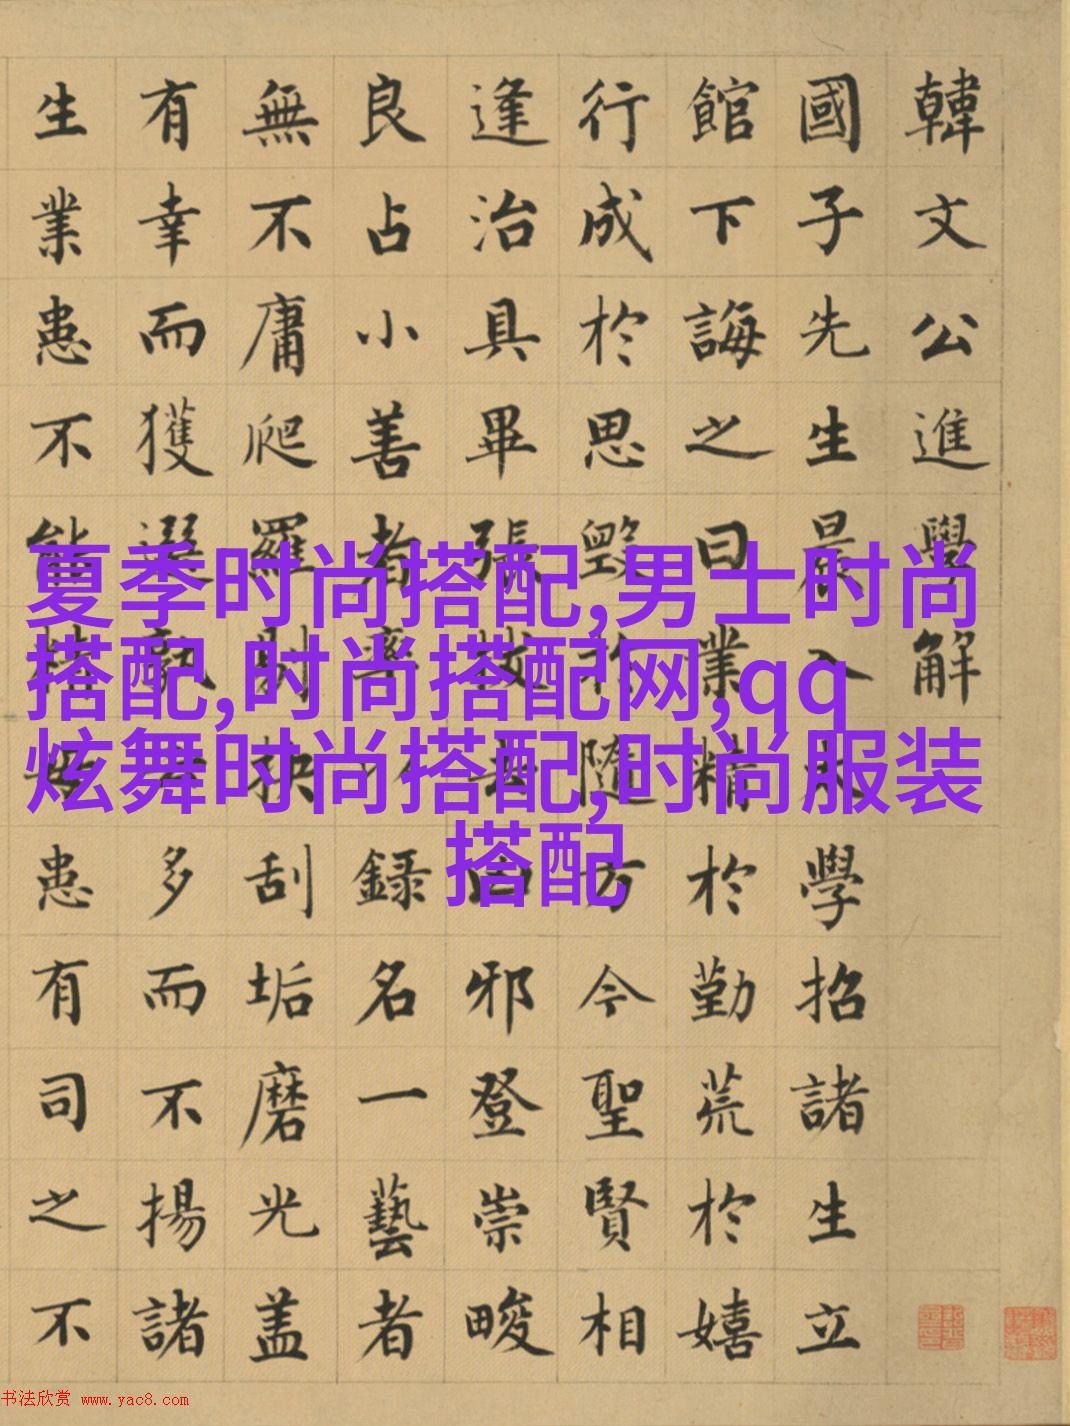 韓文公進學解
國子先生晨入太學招諸生立
館下誨之曰業精於勤荒於嬉
行成於思毀於隨方今聖賢相
逢治具畢張拔去凶邪登崇畯
良占小善者率以錄名一藝者
無不庸爬羅剔抉刮垢磨光盖
有幸而獲選孰多而不揚諸
生業患不能精患有司之不
夏季时尚搭配,男士时尚
搭配,时尚搭配网,qq
炫舞时尚搭配,时尚服装
搭配
书法欣赏 www.yac8.com